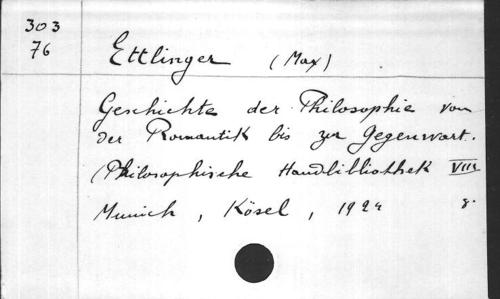 303
76
Ettlinger (Max)
Geschichte der Philosophie von
der Romantik bis zur Gegenwart.
(Philosophische Handbibliothek VIII
Munich, Kösel, 1924 8.